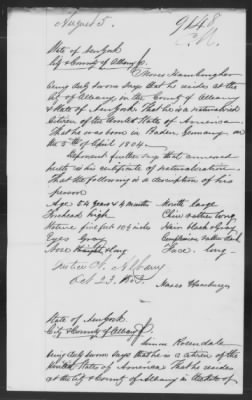 August 5.
9648
State of New York
City & County of Albany
Moses Hamburgher
being duly sworn says that he resides at the
City of Albany in the County of Albany
& State of New York. That he is a naturalized
Citizen of the United States of America.
That he was born in Baden Germany on
the 5th of April 1804.
Deponent further says that annexed
hereto is his certificate of naturalization.
That the following is a description of his
person
Age 54 years & 4 months Mouth large
Forehead high Chin rather long
Stature five feet 10½ inches Hair black & Gray
Eyes Gray Complexion rather dark
Nose straight & long Face long
Justice Ct. Albany
Oct 23.
Moses Hamburger
State of New York
City & County of Albany
Simon Rosendale
being duly sworn says that he is a citizen of the
United States of America That he resides
at the City & County of Albany in State of